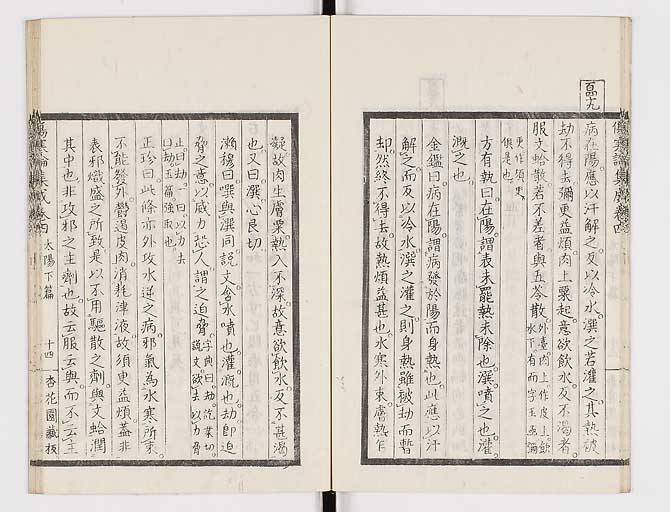 病在陽應以汗解之反以冷水潠之若灌之其熱被
劫不得去彌更益煩肉上粟起意欲飲水反不渴者
服文蛤散若不差者與五苓散
方有執曰在陽謂表未罷熱未除也潠噴之也灌
溉之也
金鑑曰病在陽謂病發於陽而身熱也此應以汗
解之而反以冷水潠之灌之則身熱雖被劫而暫
却然終不得去故熱煩益甚也水寒外束膚熱乍
凝故肉生膚粟熱入不深故意欲飲水反不甚渴
也又曰潠心良切
瀬穆曰噀與潠同説文含水噴也灌溉也劫卽迫
脅之意以威力恐人謂之迫脅
正珍曰此條亦外攻水逆之病邪氣為水寒所束
不能發外鬱過皮肉消耗津液故須更益煩蓋非
表邪熾盛之所致是以不用驅散之劑與文蛤潤
其中也非攻邪之主劑也故云服云與而不云主
傷寒論集成卷四 太陽下篇 十四 杏花園藏板